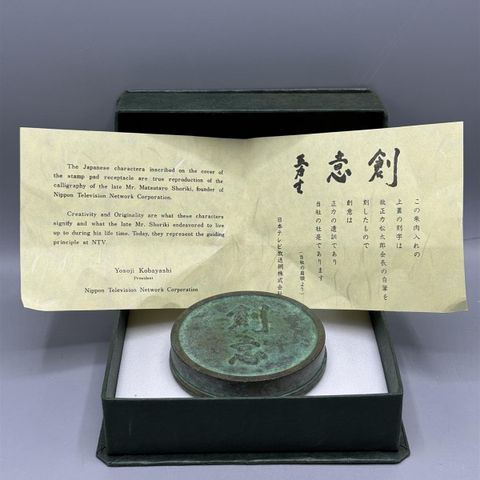 The Japanese characters inscribed on the cover of
the stamp pad receptacle are true reproduction of the
calligraphy of the late Mr. Matsutaro Shoriki, founder of
Nippon Television Network Corporation.
Creativity and Originality are what these characters
signify and what the late Mr. Shoriki endeavored to live
up to during his life time. Today, they represent the guiding
principle at NTV.
Yosoji Kobayashi
President
Nippon Television Network Corporation
創意
この朱肉入れの
上蓋の刻字は
故正力松太郎会長の自筆を
刻したもので
創意は
正力の遺訓であり
当社の社是であります
日本テレビ放送網株式会
創意